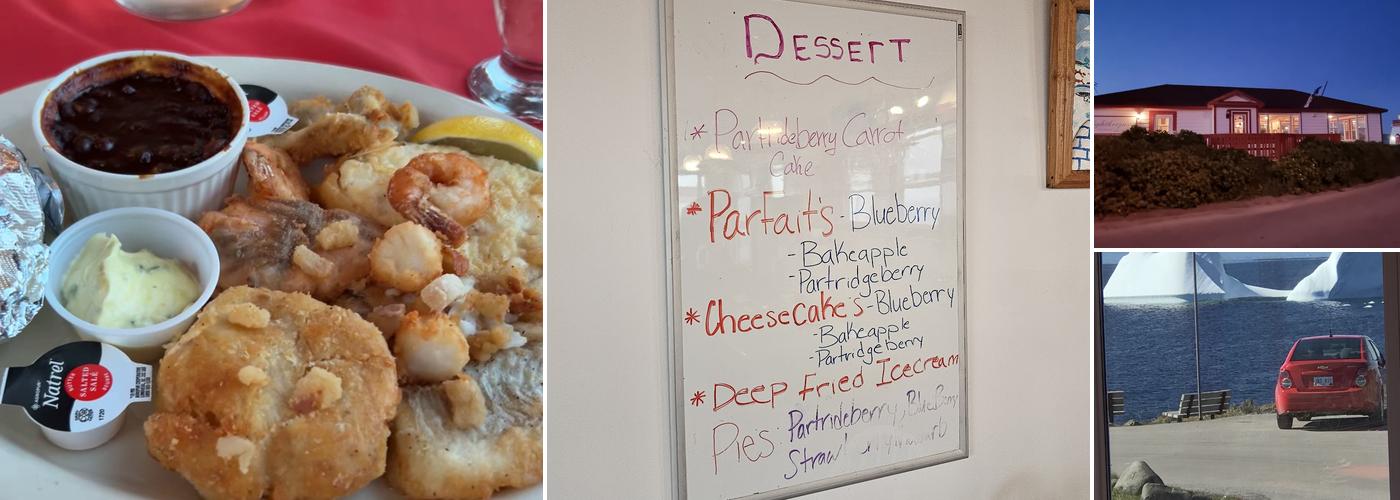 Natrel
SALTED
SALÉ
1720
DESSERT
* Partrideberry Carrot
Cake
* Parfait's - Blueberry
- Bakeapple
- Partridgeberry
* Cheesecake's - Blueberry
- Bakeapple
- Partridgeberry
* Deep Fried Icecream
Pies Partrideberry, Blueberry